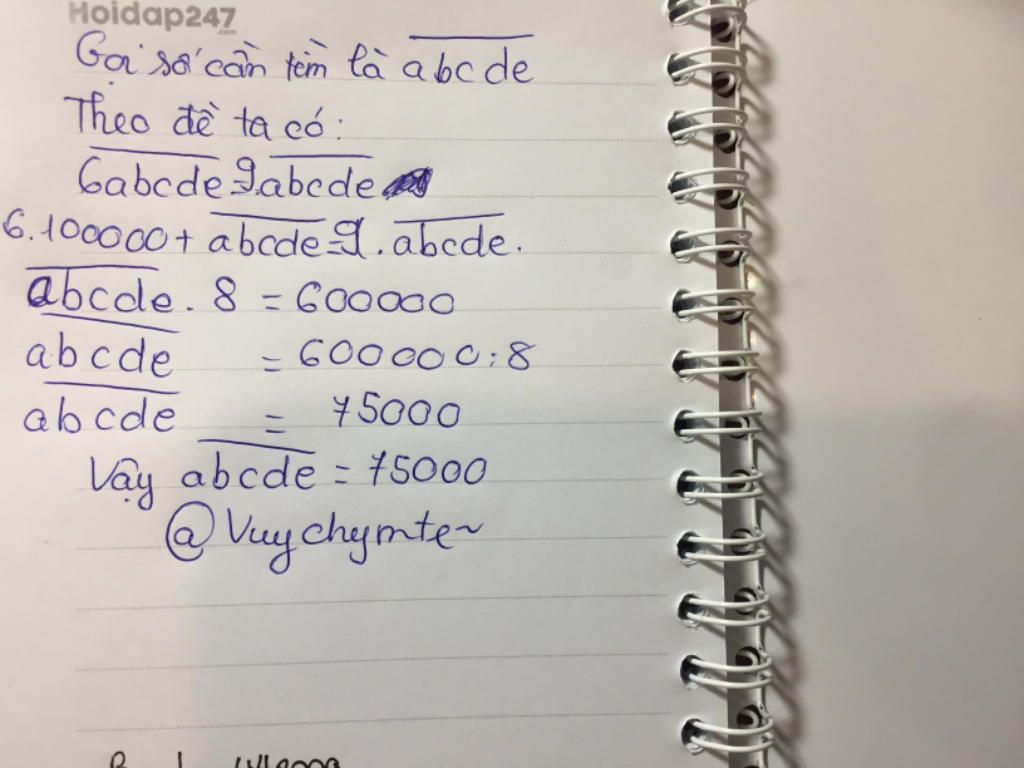 Hoidap247
.com
Gọi số cần tìm là abcde
Theo đề ta có:
6abcde=9.abcde
6.100000+abcde=9.abcde.
abcde.8=600000
abcde=600000:8
abcde=75000
Vậy abcde=75000
@Vuychymte~